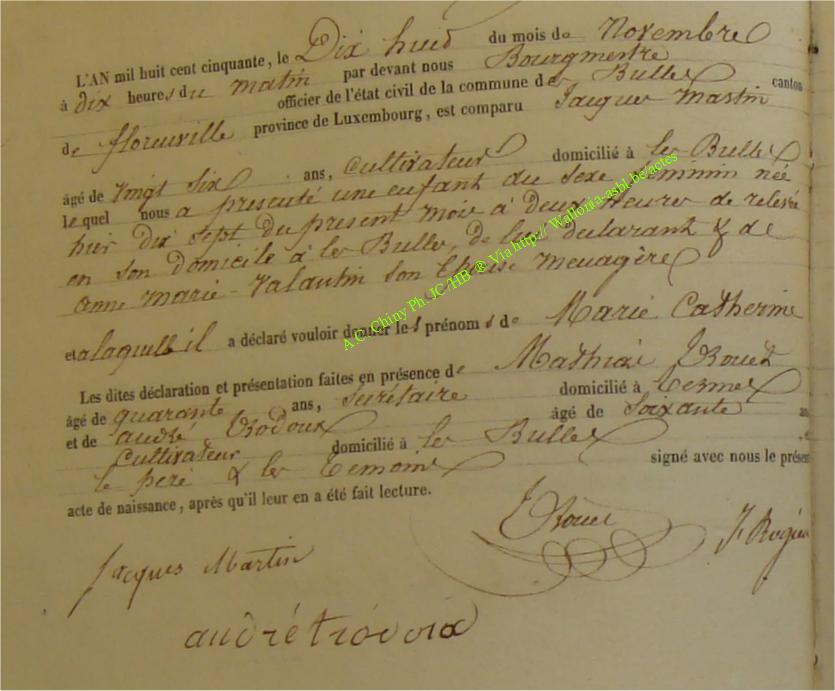 L'AN mil huit cent cinquante, le Dix huit du mois de Novembre
à dix heures du matin par devant nous Bourgmestre
officier de l'état civil de la commune de les Bulles canton
de florenville province de Luxembourg, est comparu Jacques Martin
âgé de vingt six ans, Cultivateur domicilié à les Bulles
le quel nous a présenté une enfant du sexe féminin née
hier dix sept du présent mois à deux heures de relevé
en son domicile à les Bulles, de lui déclarant & de
anne marie-Valantin son Epouse menagère
et a laquelle il a déclaré vouloir donner les prénoms de Marie Catherine
Les dites déclaration et présentation faites en présence de Mathias
âgé de quarante ans, Secrétaire domicilié à termes
et de andré trodoux âgé de Soixante
Cultivateur domicilié à les Bulles
le père & les temoins signé avec nous le présen
acte de naissance, après qu'il leur en a été fait lecture.
Jacques Martin
andré trodoux
A.C. Chiny Ph JC/HB ® Via http://Wallonia-asbl.be/actes